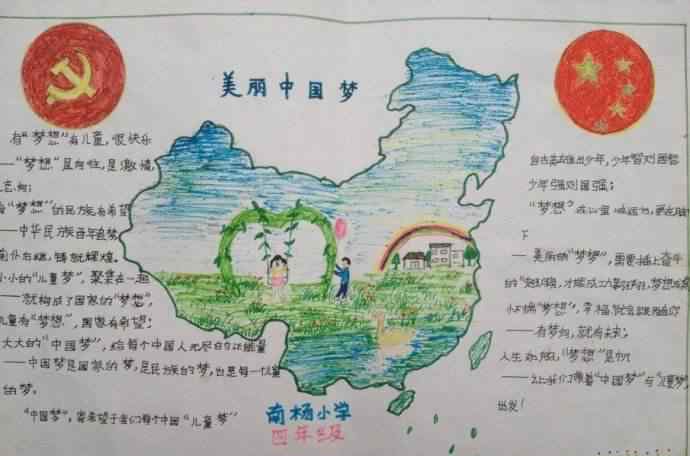 美丽中国梦
有“梦想”有儿童，很快乐
——“梦想”是向往，是激情，
“梦想”的民族有希望
——中华民族百年追梦
前仆后继，铸就辉煌。
小小的“儿童梦”，聚集在一起
——就构成了国家的“梦想”，
儿童有“梦想”，国家有希望；
大大的“中国梦”，给每个中国人无尽的正能量
——中国梦是国家的梦，是民族的梦，也是每一
的梦。
“中国梦”，寄希望于我们每个中国“儿童梦”
自古英雄出少年，少年智则国智
少年强则国强；
“梦想”在
下
——美丽的“梦想”，需要插上奋斗
的“翅膀”，才能成功
“梦想”，幸福就会
——有梦想，就有未来；
人生“梦想”是帆
——让我们乘着“中国梦”与“儿童梦”
出发！
南杨小学
四年级